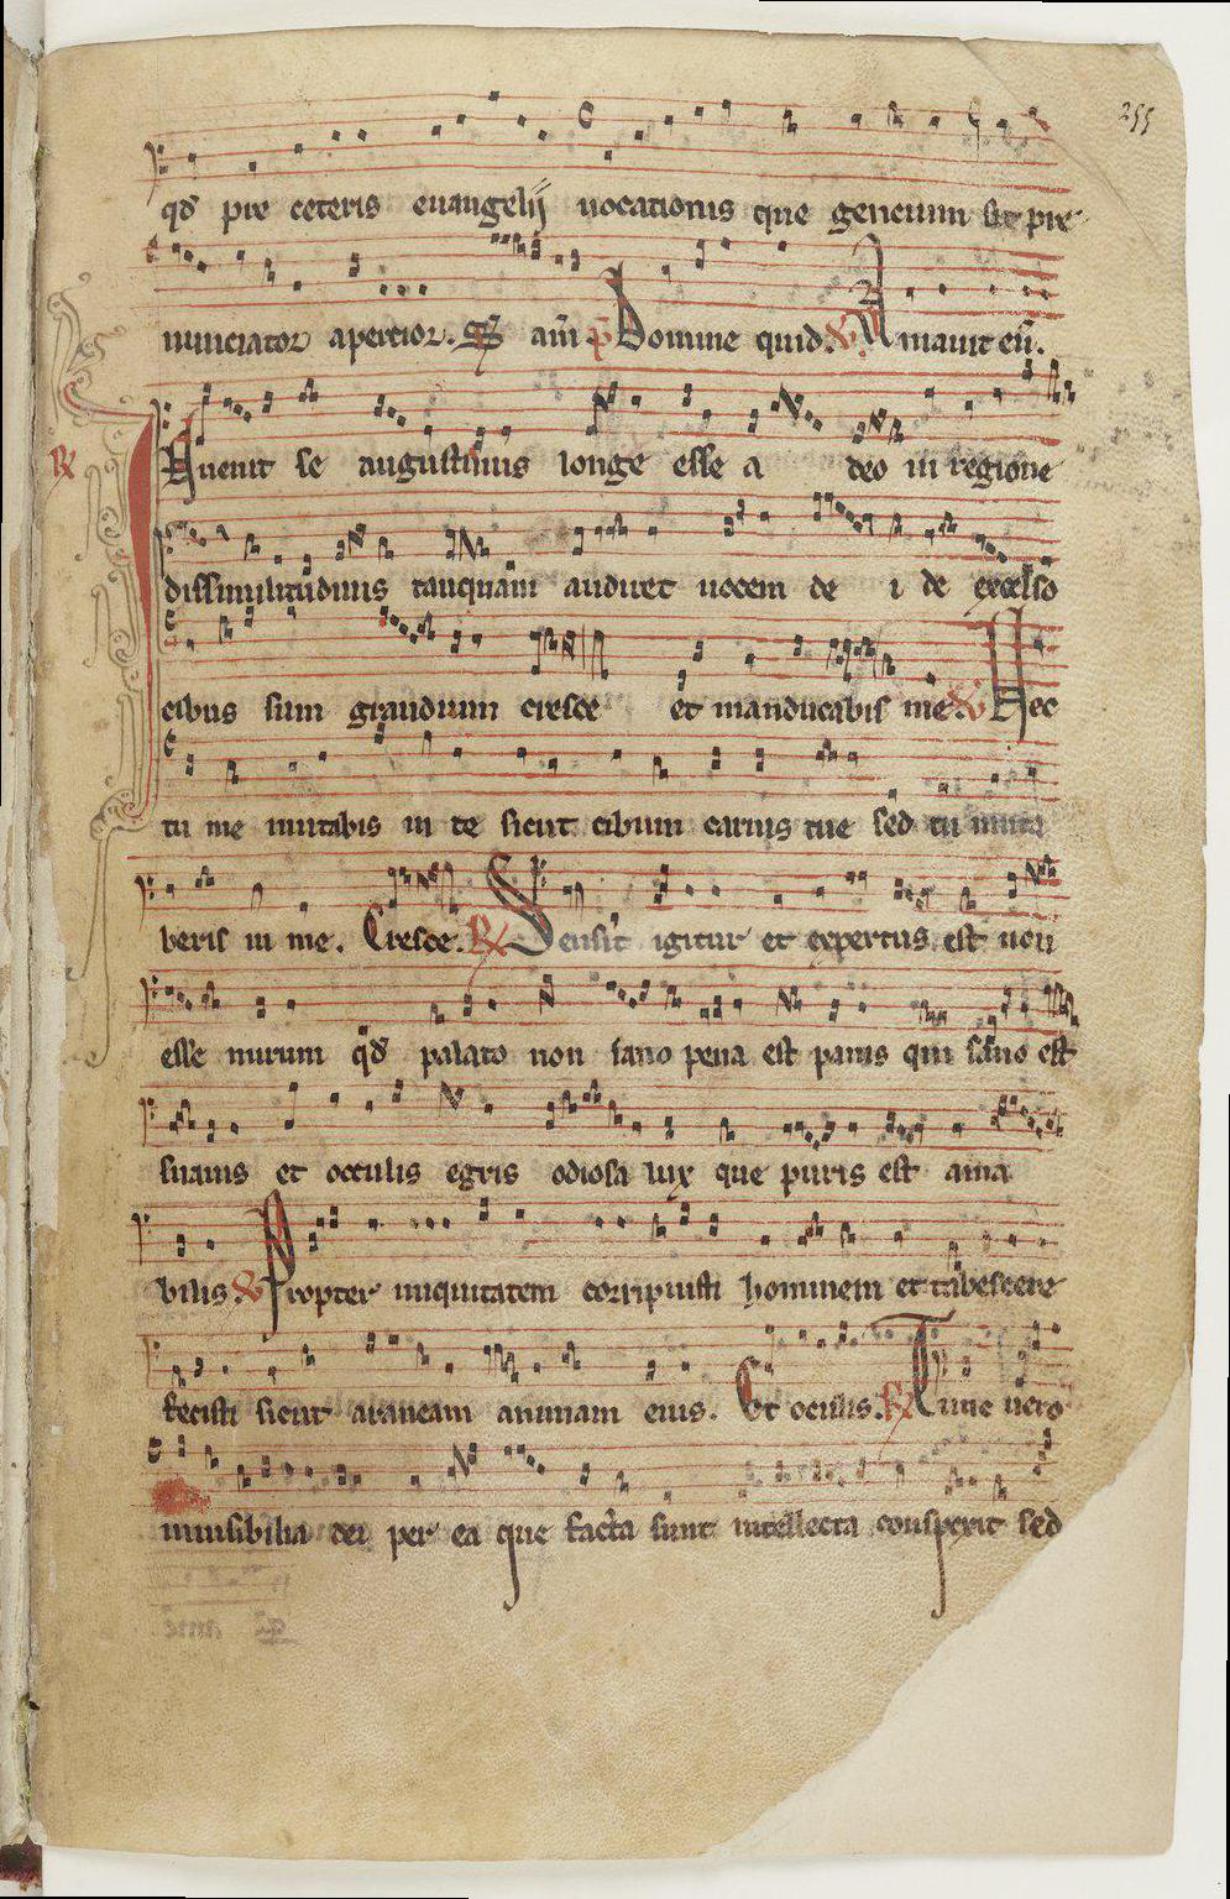 255
qd pre ceteris euangelij uocationis que gencium sit pre
nunciator apercior. S am p Domine quid. V Amauit eu.
R Inuenit se augustinus longe esse a deo in regione
dissimilitudinis tanquam audiret uocem de i de excelso
cibus sum grandium cresce et manducabis me. V Nec
tu me mutabis in te sicut cibum carnis tue sed tu muta
beris in me. Cresce. R Sensit igitur et expertus est non
esse mirum qd palato non sano pena est panis qui sano est
suauis et occulis egris odiosa lux que puris est ama
bilis. V Propter iniquitatem corripuisti hominem et tabescere
fecisti sicut araneam animam eius. Et oculis. R Tunc uero
inuisibilia dei per ea que facta sunt intellecta conspexit sed